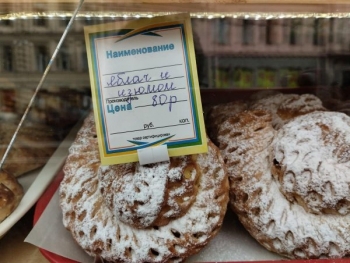 Наименование
яблоч и
изюмом
Производитель
Цена 80р
руб. коп.